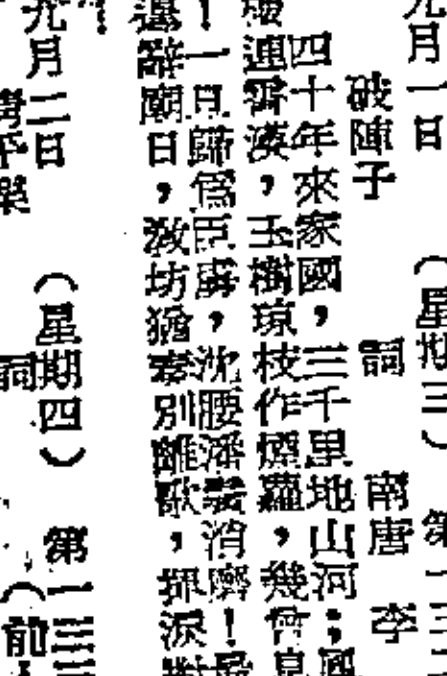 元月一日 (星期三) 第一三二
破陣子 詞 南唐 李
四十年來家國,三千里地山河;
樓連霄漢,玉樹瓊枝作煙蘿,幾曾
!一旦歸為臣虜,沈腰潘鬢消磨!最
遑辭廟日,教坊猶奏別離歌,揮淚對
元月二日 (星期四) 第一三三
平樂 詞 (前